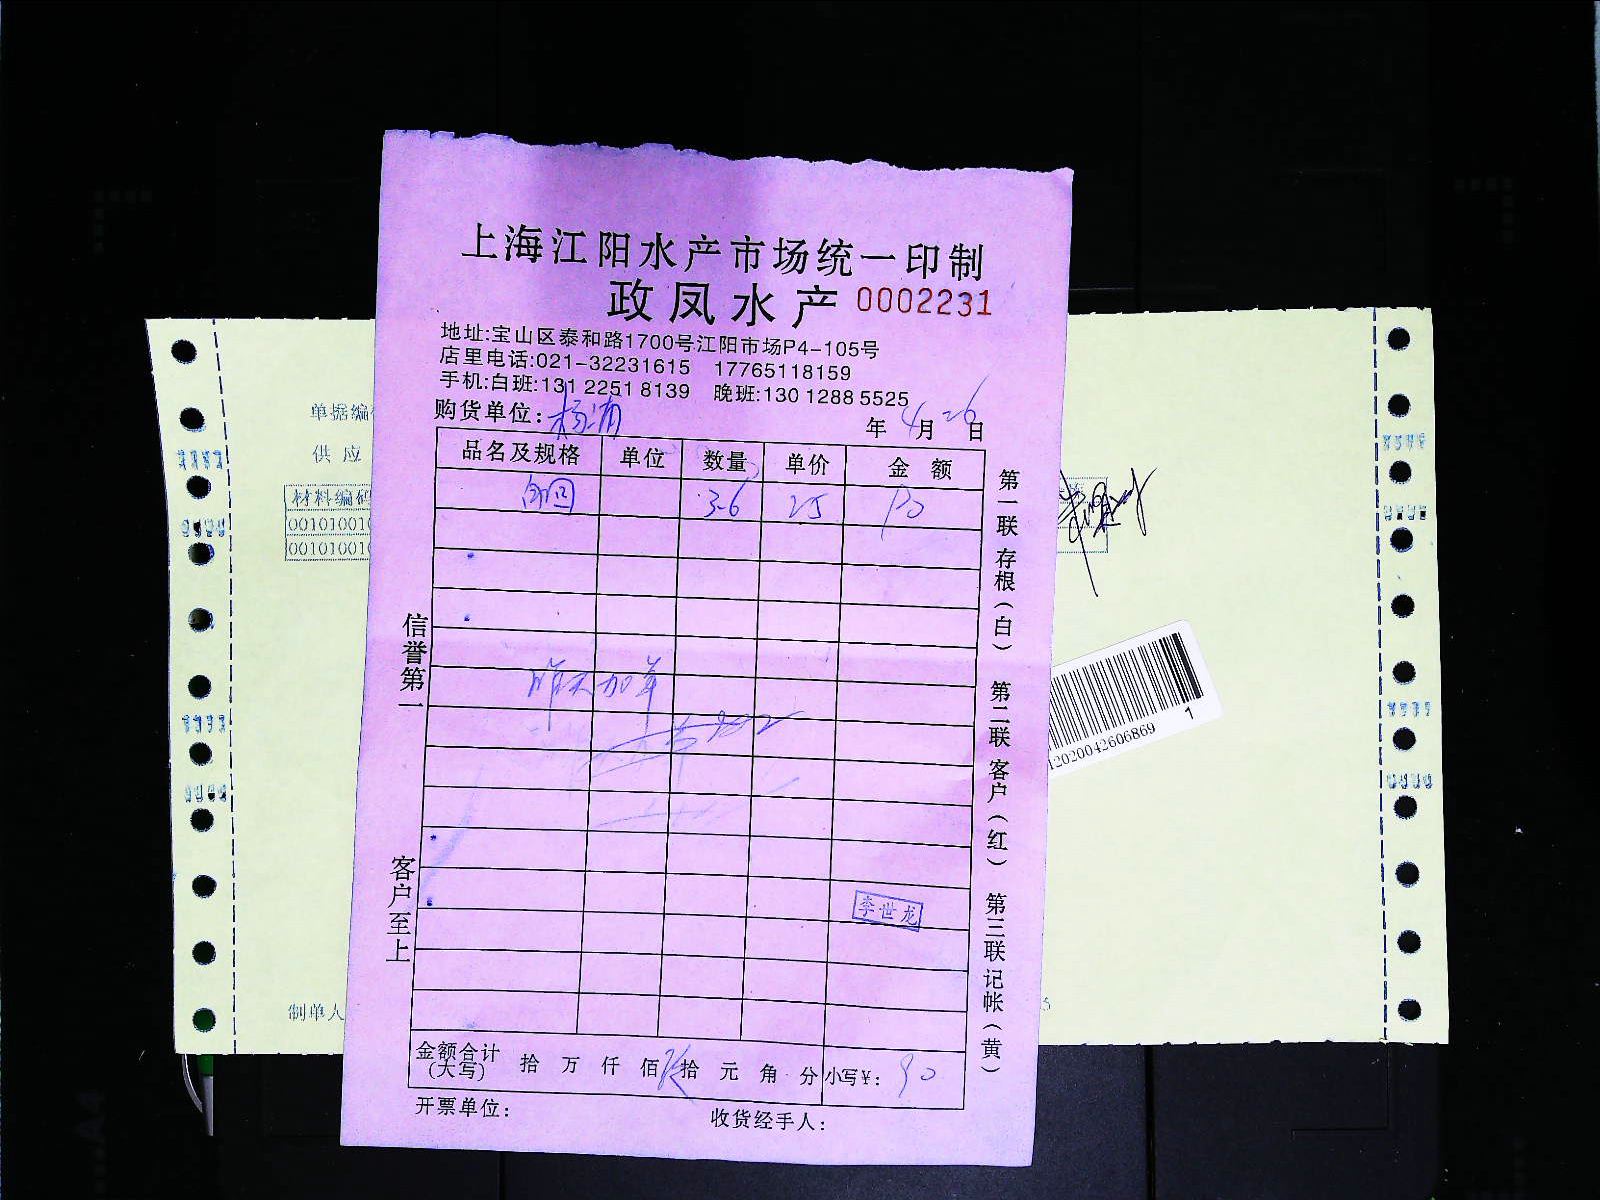 上海江阳水产市场统一印制
政凤水产 0002231
地址:宝山区泰和路1700号江阳市场P4-105号
店里电话:021-32231615 17765118159
手机:白班:131 2251 8139 晚班:130 1288 5525
购货单位: 杨浦 年 4月 26日
品名及规格 单位 数量 单价 金额
3.6 25 90
昨天加单
李世龙
金额合计(大写) 拾 万 仟 佰 玖拾 元 角 分 小写¥: 90
开票单位: 收货经手人:
信誉第一
客户至上
第一联 存根(白)
第二联 客户(红)
第三联 记帐(黄)
单据编
供 应
材料编码
00101001
00101001
制单人
12020042606869
1